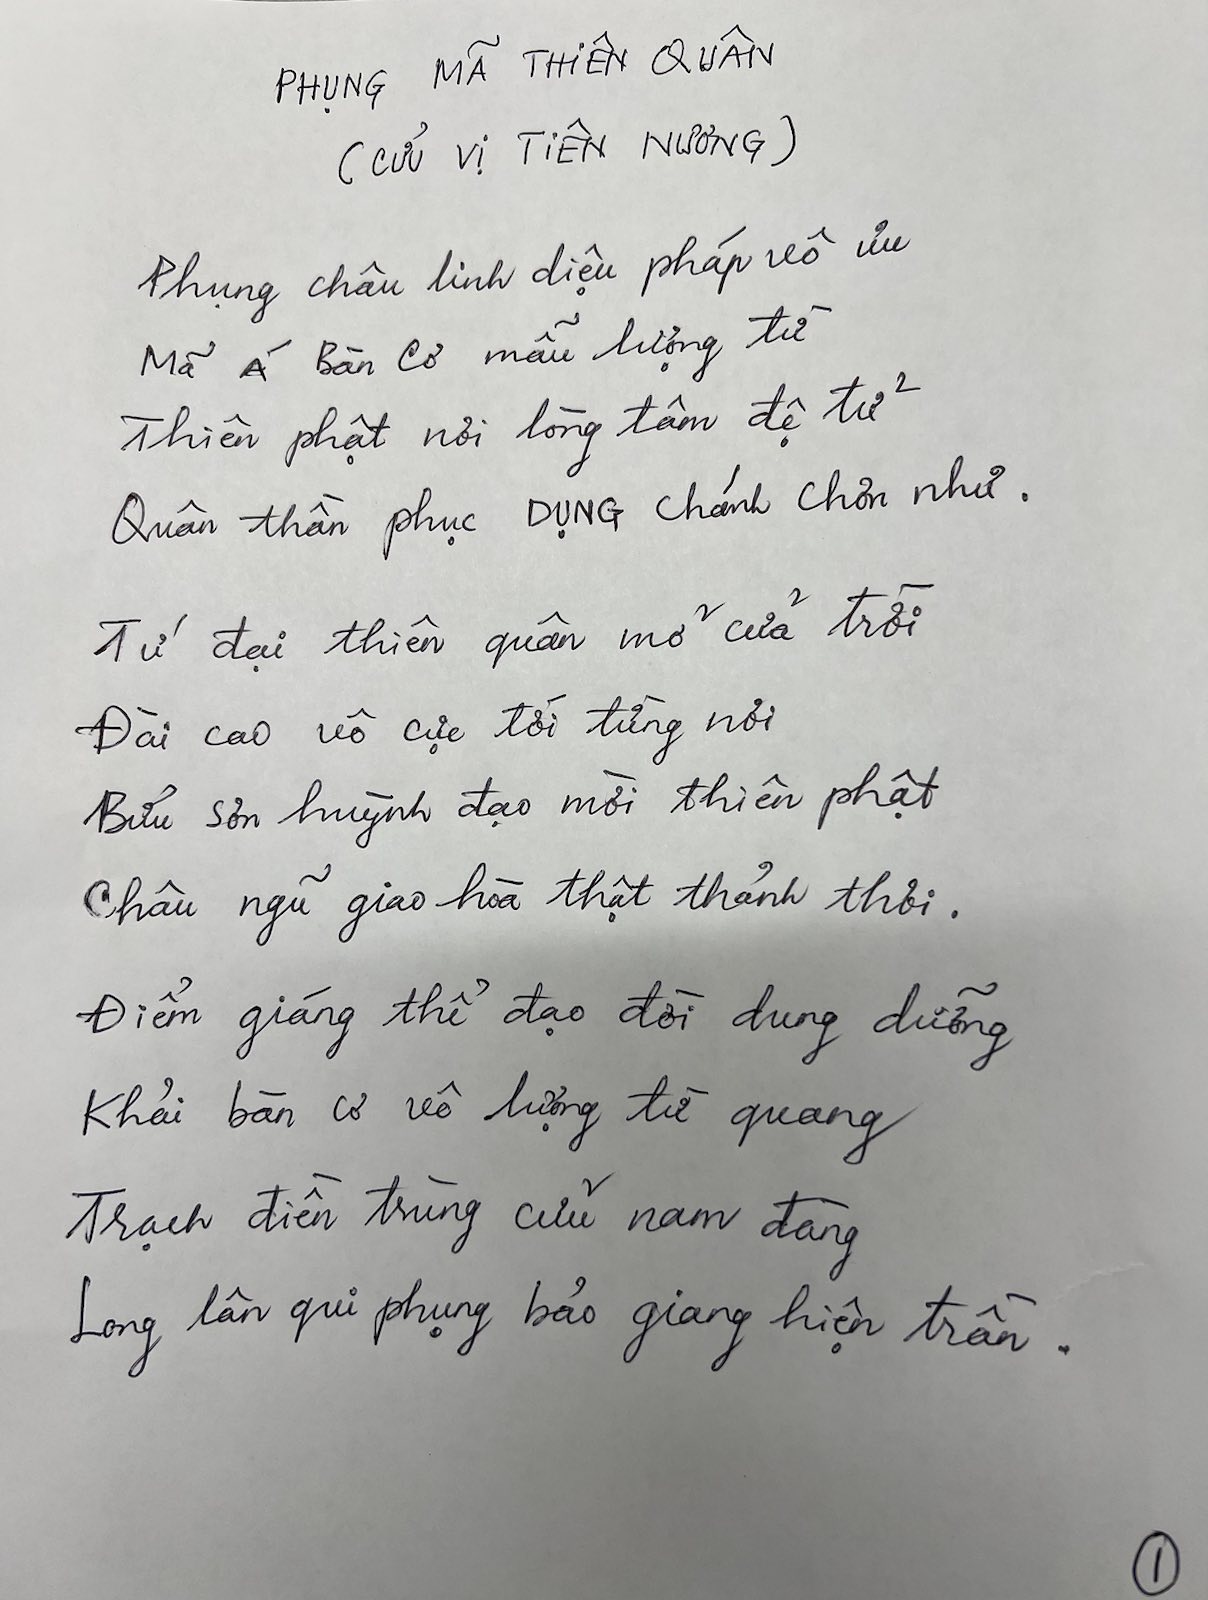 PHỤNG MÃ THIÊN QUÂN
(CỬU VỊ TIÊN NƯƠNG)
Phụng châu linh diệu pháp vô ưu
Mã Á Bàn Cơ mẫu lượng từ
Thiên phật nơi lòng tâm đệ tử
Quân thần phục DỤNG chánh chơn như.
Tứ đại thiên quân mở cửa trời
Đài cao vô cực tới từng nơi
Bửu sơn huỳnh đạo mời thiên phật
Châu ngũ giao hòa thật thảnh thơi.
Điểm giáng thế đạo đời dung dưỡng
Khải bàn cơ vô lượng từ quang
Trạch điền trùng cửu nam đàng
Long lân qui phụng bảo giang hiện trần.
1